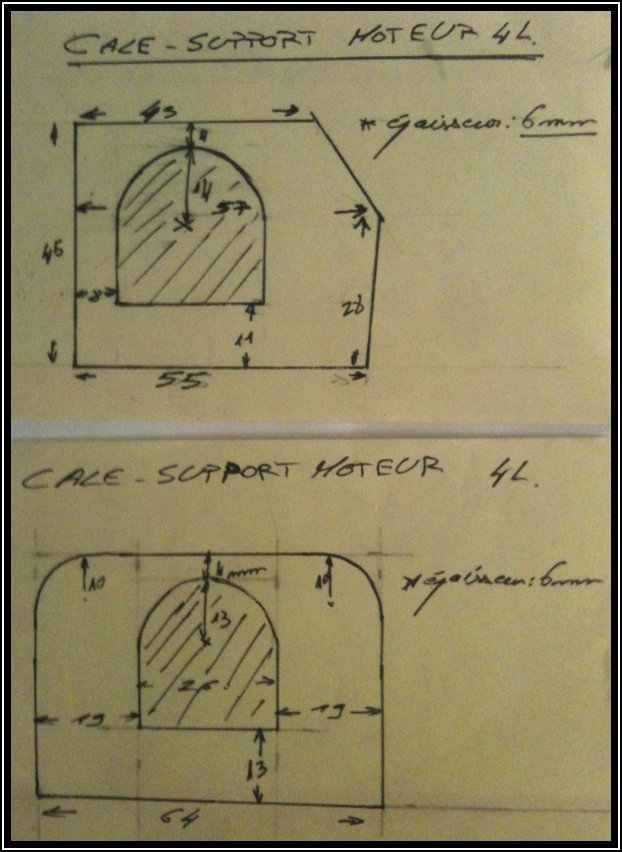 CALE - SUPPORT MOTEUR 4L.
43
* épaisseur: 6 mm
14
57
45
8
28
11
55
CALE - SUPPORT MOTEUR 4L.
10
4 mm
10
* épaisseur: 6 mm
13
26
19
19
13
64